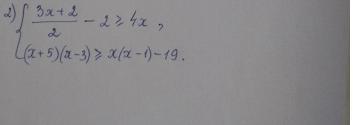 2) { (3x+2)/2 − 2 ⩾ 4x ,
(x+5)(x−3) ⩾ x(x−1)−19.